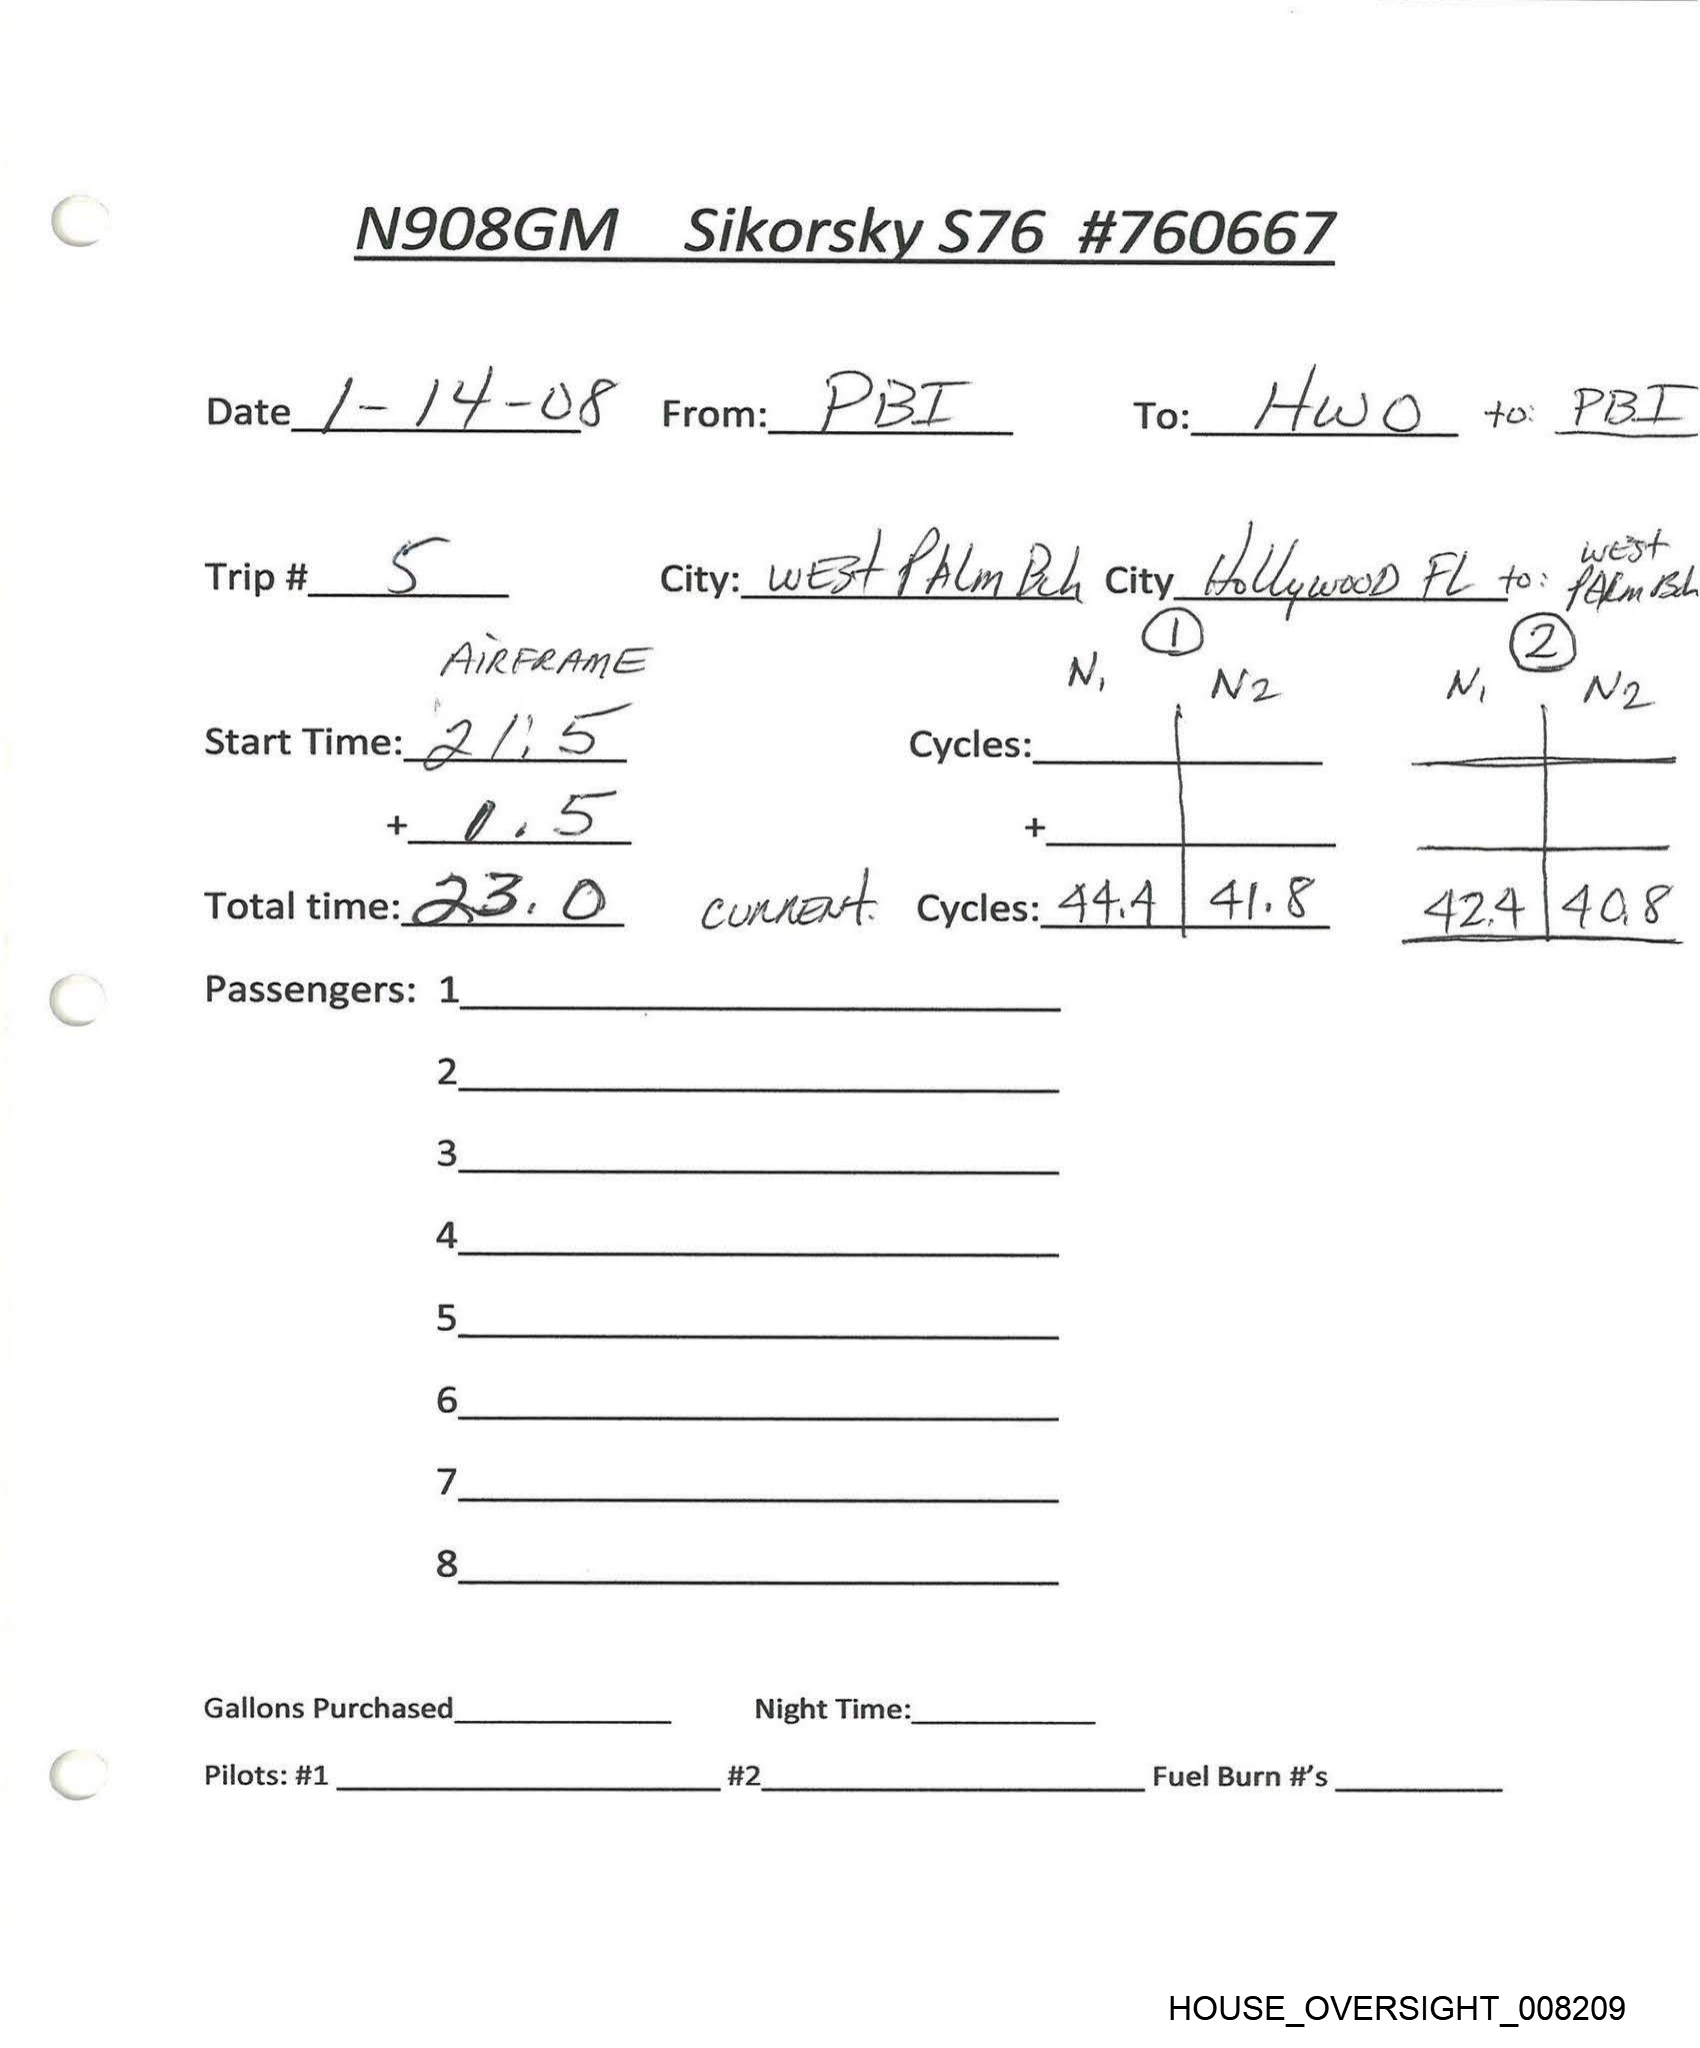 N908GM Sikorsky S76 #760667
Date 1-14-08 From: PBI To: HWO to: PBI
Trip # 5 City: WEST PALM Bch City Hollywood FL to: WEST PALM Bch
AIRFRAME N1 ① N2 N1 ② N2
Start Time: 21.5 Cycles:
+ 1.5 +
Total time: 23.0 CURRENT. Cycles: 44.4 41.8 42.4 40.8
Passengers: 1
2
3
4
5
6
7
8
Gallons Purchased Night Time:
Pilots: #1 #2 Fuel Burn #'s
HOUSE_OVERSIGHT_008209